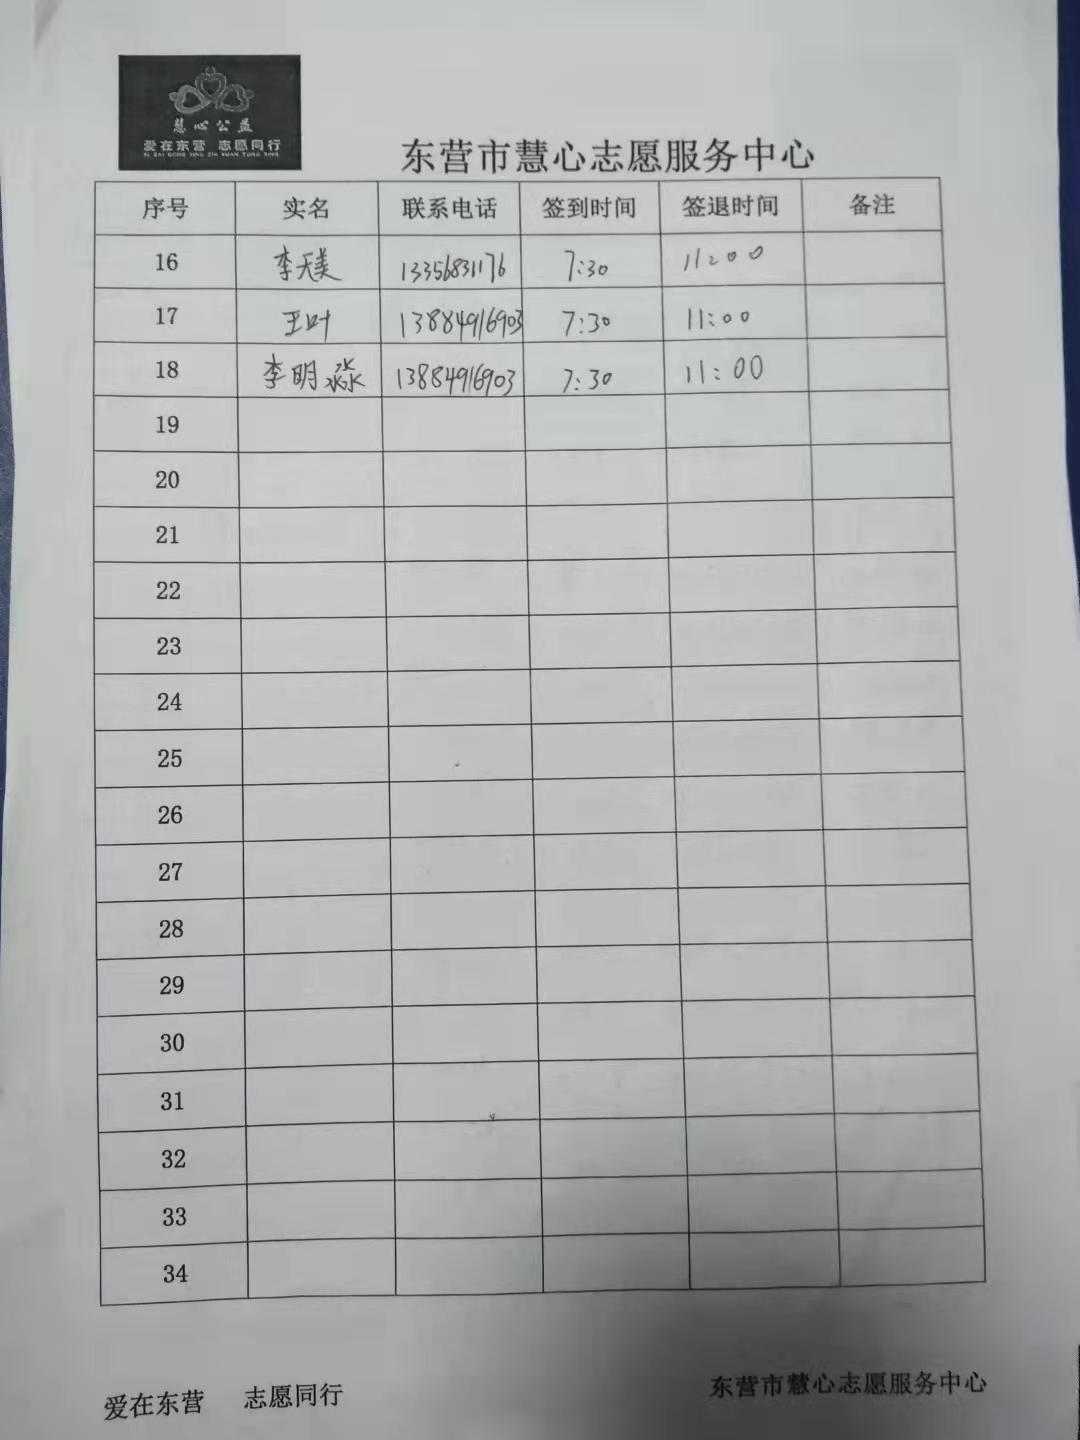 慧心公益
爱在东营 志愿同行
AI ZAI DONG YING ZHI YUAN TONG XING
东营市慧心志愿服务中心
序号 实名 联系电话 签到时间 签退时间 备注
16 李天美 13356831176 7:30 11:00
17 王叶 13884916903 7:30 11:00
18 李明淼 13884916903 7:30 11:00
19
20
21
22
23
24
25
26
27
28
29
30
31
32
33
34
爱在东营 志愿同行
东营市慧心志愿服务中心